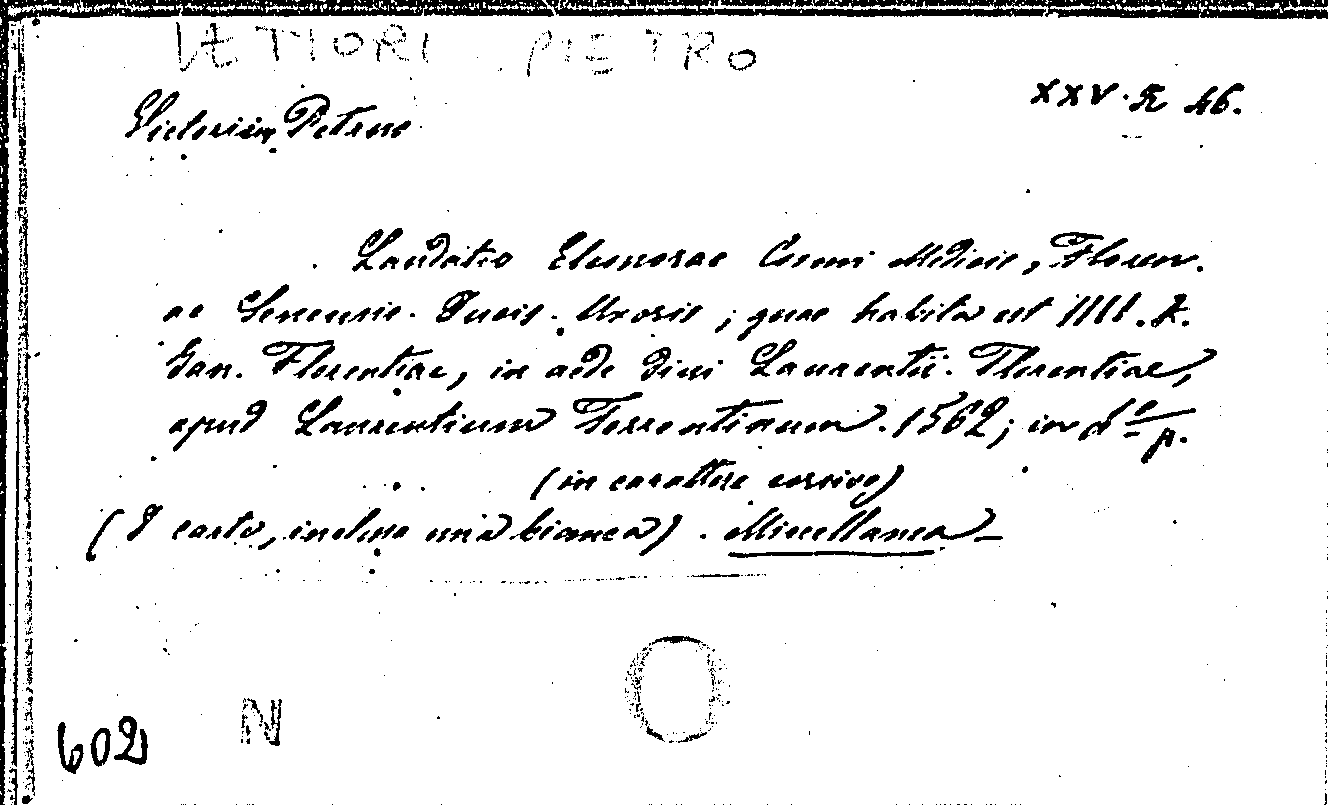 VETTORI PIETRO
XXV. R 46.
Victorius Petrus
Laudatio Eleonorae Cosmi Medicis, Floren.
ac Senensis. Ducis. Uxoris; quae habita est IIII. K.
Jan. Florentiae, in aede divi Laurentii. Florentiae,
apud Laurentium Torrentinum. 1562; in 4° p.
(in carattere corsivo)
(8 carte, inclusa una bianca). Miscellanea
602 N